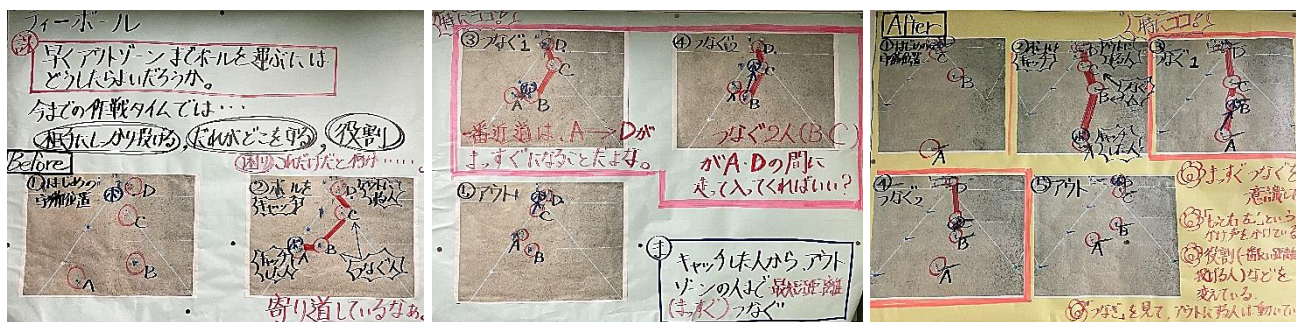 ティーボール
課
早くアウトゾーンまでボールを運ぶには
どうしたらよいだろうか。
今までの作戦タイムでは…
相手にしっかり投げる,だれがどこを守る,役割
Before
困り これだけだと何か……。
①はじめの
守備位置
D
C
A
B
②ボールを
キャッチ
D
C
A
B
キャッチ
した人
つなぐ人
寄り道しているなぁ。
特にココ!
③つなぐ1
D
C
A
B
一番近道は、A→Dが
まっすぐになることだよな。
④つなぐ2
D
C
A
B
つなぐ2人(B,C)
がA・Dの間に
走って入ってくればいい?
⑤アウト
A
キャッチした人から、アウト
ゾーンの人まで最短距離
(まっすぐ)つなぐ
After
特にココ!
①はじめの
守備位置
A
②ボールを
キャッチ
D
C
B
A
キャッチ
した人
③つなぐ1
D
C
B
A
④
つなぐ2
D
B
A
⑤アウト
A
まっすぐつなぐを
意識し
「もっと右、左」という
役割(一番長い距離
投げる人)などを
変えている。
「つなぎ」を見て、アウトにする人は動いて